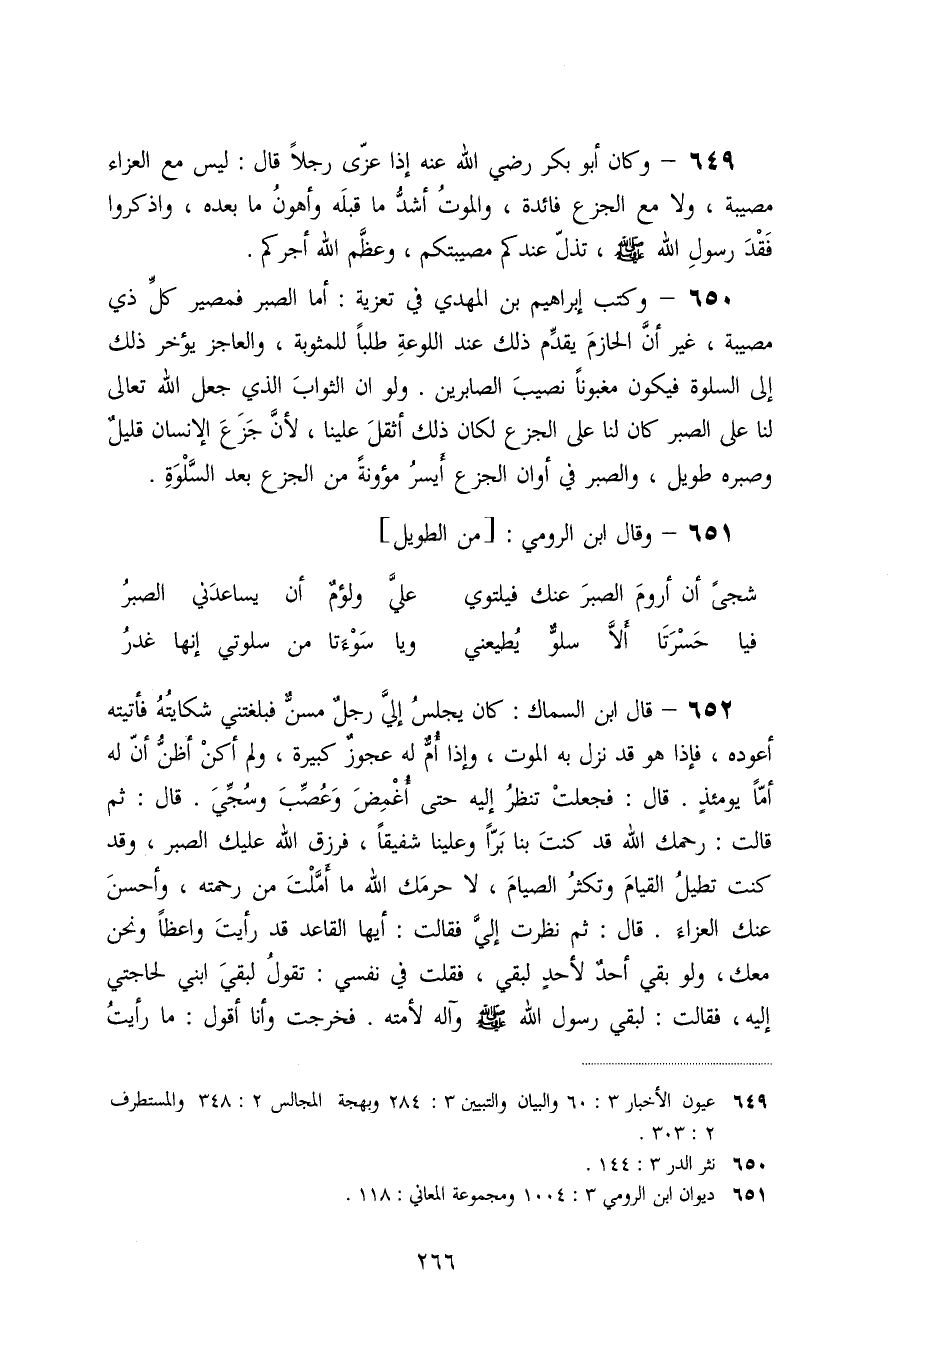 ٦٤٩ – وكان أبو بكر رضي الله عنه إذا عزّى رجلاً قال : ليس مع العزاء
مصيبة ، ولا مع الجزع فائدة ، والموتُ أشدُّ ما قبلَه وأهونُ ما بعده ، واذكروا
فَقْدَ رسولِ الله ﷺ ، تذلّ عندكم مصيبتكم ، وعظَّم الله أجركم .
٦٥٠ – وكتب إبراهيم بن المهدي في تعزية : أما الصبر فمصير كلِّ ذي
مصيبة ، غير أنَّ الحازمَ يقدِّم ذلك عند اللوعةِ طلباً للمثوبة ، والعاجز يؤخر ذلك
إلى السلوة فيكون مغبوناً نصيبَ الصابرين . ولو ان الثوابَ الذي جعل الله تعالى
لنا على الصبر كان لنا على الجزع لكان ذلك أثقلَ علينا ، لأنَّ جَزَعَ الإنسان قليلٌ
وصبره طويل ، والصبر في أوان الجزع أَيسرُ مؤونةً من الجزع بعد السَّلْوَةِ .
٦٥١ – وقال ابن الرومي : [من الطويل]
شجىً أن أرومَ الصبرَ عنك فيلتوي عليَّ ولؤمٌ أن يساعدَني الصبرُ
فيا حَسْرَتَا أَلاَّ سلوٌّ يُطيعني ويا سَوْءَتا من سلوتي إنها غدرُ
٦٥٢ – قال ابن السماك : كان يجلسُ إليَّ رجلٌ مسنٌّ فبلغتني شكايتُهُ فأتيته
أعوده ، فإذا هو قد نزل به الموت ، وإذا أُمٌّ له عجوزٌ كبيرة ، ولم أكنْ أظنُّ أنّ له
أمّاً يومئذٍ . قال : فجعلتْ تنظرُ إليه حتى أُغْمِضَ وَعُصِّبَ وسُجِّيَ . قال : ثم
قالت : رحمك الله قد كنتَ بنا بَرّاً وعلينا شفيقاً ، فرزق الله عليك الصبر ، وقد
كنت تطيلُ القيامَ وتكثرُ الصيامَ ، لا حرمَك الله ما أَمَّلْتَ من رحمته ، وأحسنَ
عنك العزاء . قال : ثم نظرت إليَّ فقالت : أيها القاعد قد رأيتَ واعظاً ونحن
معك، ولو بقي أحدٌ لأحدٍ لبقي ، فقلت في نفسي : تقولُ لبقيَ ابني لحاجتي
إليه، فقالت : لبقي رسول الله ﷺ وآله لأمته . فخرجت وأنا أقول : ما رأيتُ
٦٤٩ عيون الأخبار ٣ : ٦٠ والبيان والتبيين ٣ : ٢٨٤ وبهجة المجالس ٢ : ٣٤٨ والمستطرف
٢ : ٣٠٣ .
٦٥٠ نثر الدر ٣ : ١٤٤ .
٦٥١ ديوان ابن الرومي ٣ : ١٠٠٤ ومجموعة المعاني : ١١٨ .
٢٦٦